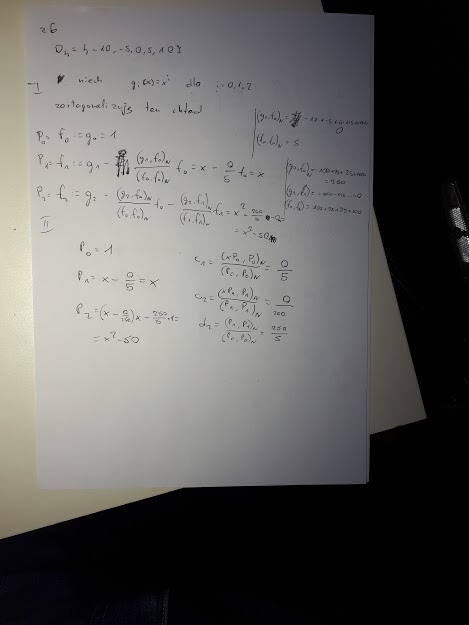 z6
D_N = {-10, -5, 0, 5, 10}
I niech g_i(x) = x^i dla i = 0, 1, 2
zortogonalizuję ten układ
P_0 = f_0 := g_0 = 1
P_1 = f_1 := g_1 - (g_1, f_0)_N / (f_0, f_0)_N f_0 = x - 0/5 f_0 = x
P_2 = f_2 := g_2 - (g_2, f_0)_N / (f_0, f_0)_N f_0 - (g_2, f_1)_N / (f_1, f_1)_N f_1 = x^2 - 250/5 - 0 =
= x^2 - 50
(g_1, f_0)_N =
0
(f_0, f_0)_N = 5
(g_2, f_0)_N = 100+25+25+100
= 250
II
P_0 = 1
P_1 = x - 0/5 = x
P_2 = (x - 0/250) x - 250/5 · 1 =
= x^2 - 50
c_1 = (xP_0, P_0)_N / (P_0, P_0)_N = 0/5
c_2 = (xP_1, P_1)_N / (P_1, P_1)_N = 0/250
d_2 = (P_1, P_1)_N / (P_0, P_0)_N = 250/5